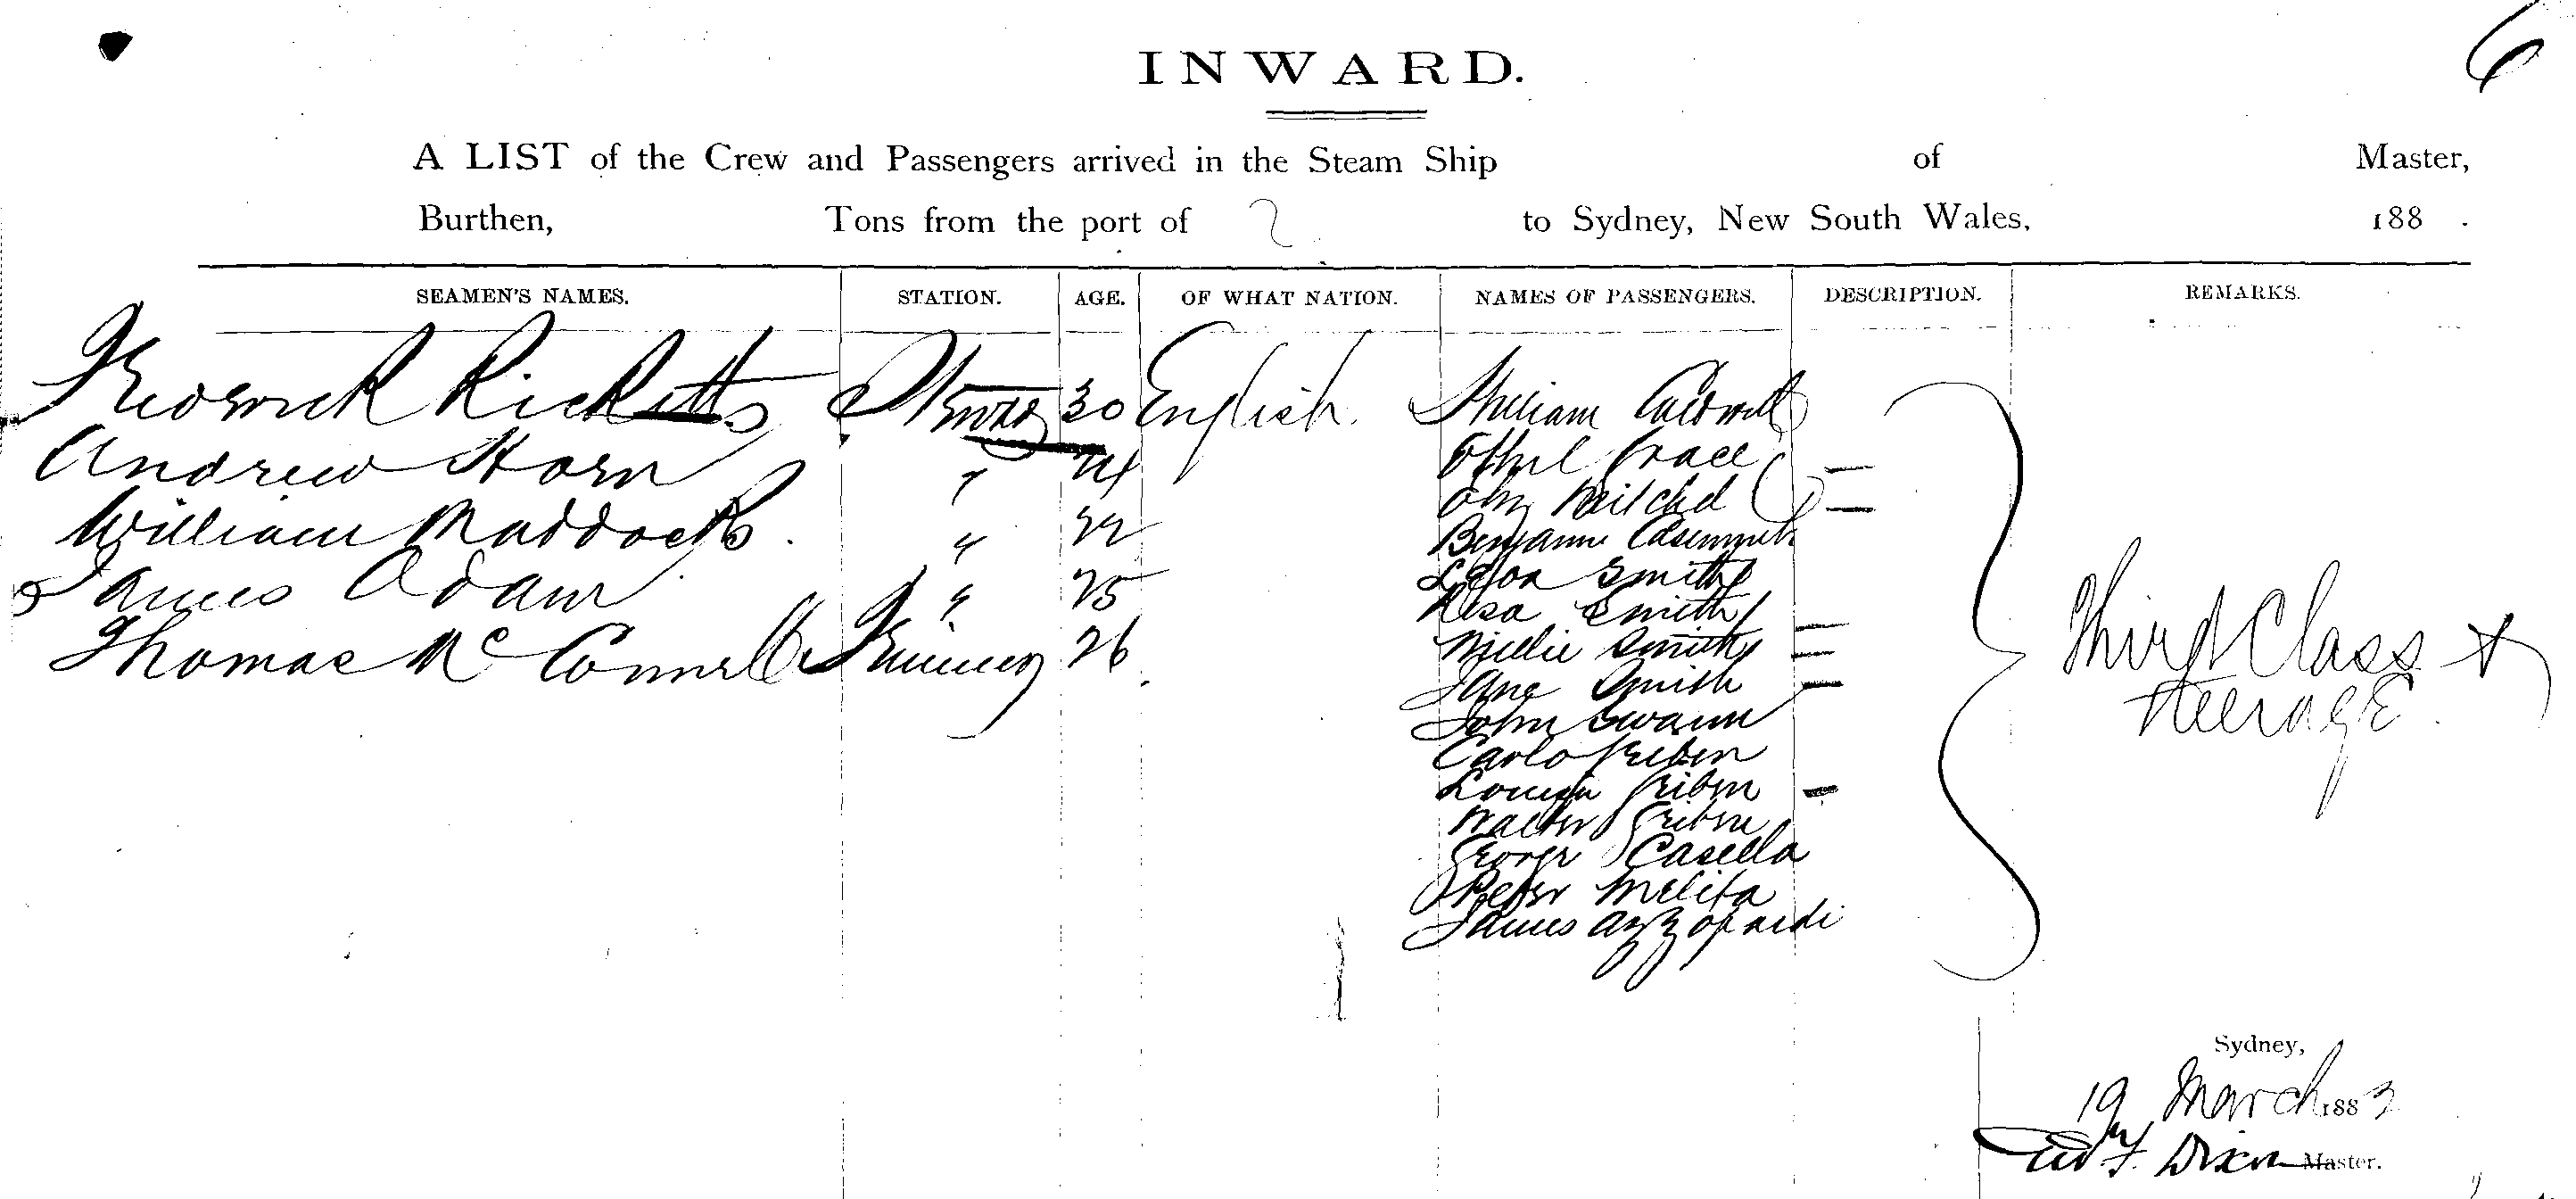 6
INWARD.
A LIST of the Crew and Passengers arrived in the Steam Ship of Master,
Burthen, Tons from the port of to Sydney, New South Wales, 188 .
SEAMEN'S NAMES. STATION. AGE. OF WHAT NATION. NAMES OF PASSENGERS. DESCRIPTION. REMARKS.
Frederick Ricketts 30 English. William Caldwell
Andrew Horn " 24 Ethel Grace —
William Maddocks. " 22 Mitchel —
Benjamin
James Adam " 25 Smith
Rosa Smith
Thomas McConnell Trimmer 26 Nellie Smith —
Jane Smith —
John Swann
Carlo Griben
Louisa Griben —
Walter Griben
George Casella
Peter Melita
James Azzopardi
Third Class &
Steerage.
Sydney,
19 March 1883
Geo F. Dixon Master.